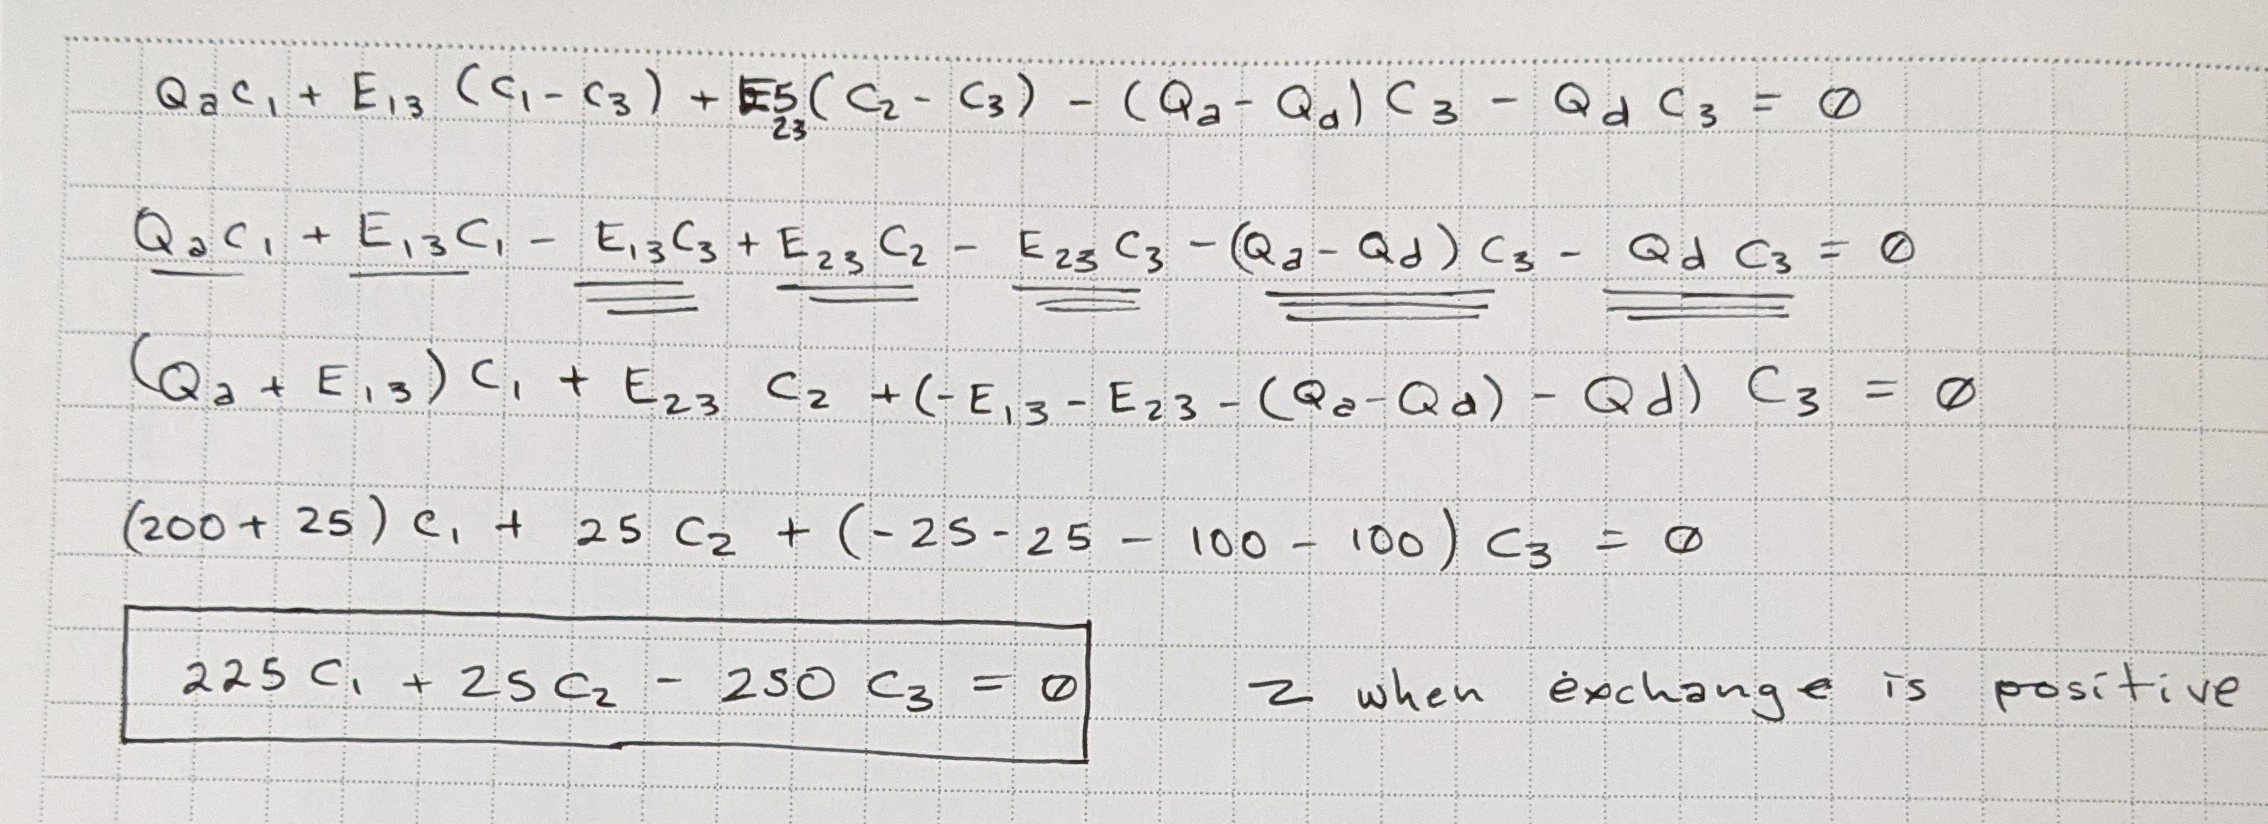 Qac₁ + E₁₃ (c₁ - c₃) + E₂₃(C₂ - C₃) - (Qa - Qd) C₃ - Qd C₃ = ∅
Qac₁ + E₁₃C₁ - E₁₃C₃ + E₂₃ C₂ - E₂₃ C₃ - (Qa - Qd) C₃ - Qd C₃ = ∅
(Qa + E₁₃) C₁ + E₂₃ C₂ + (-E₁₃ - E₂₃ - (Qa-Qd) - Qd) C₃ = ∅
(200 + 25) c₁ + 25 C₂ + (-25 - 25 - 100 - 100) C₃ = ∅
225 C₁ + 25 C₂ - 250 C₃ = ∅ 2 when exchange is positive